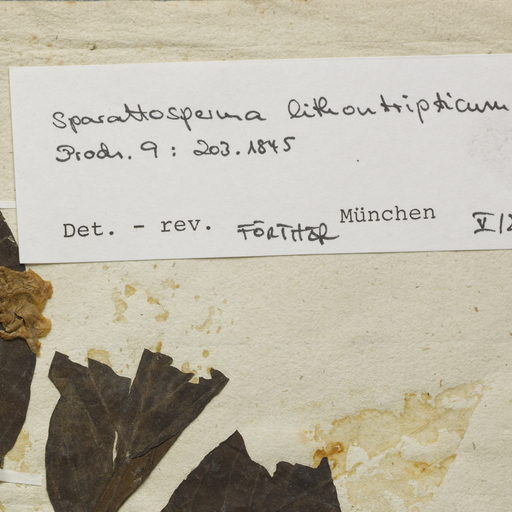 Sparattosperma lithontripticum
Prodr. 9 : 203. 1845
Det. - rev. FÖRTHER München V/2